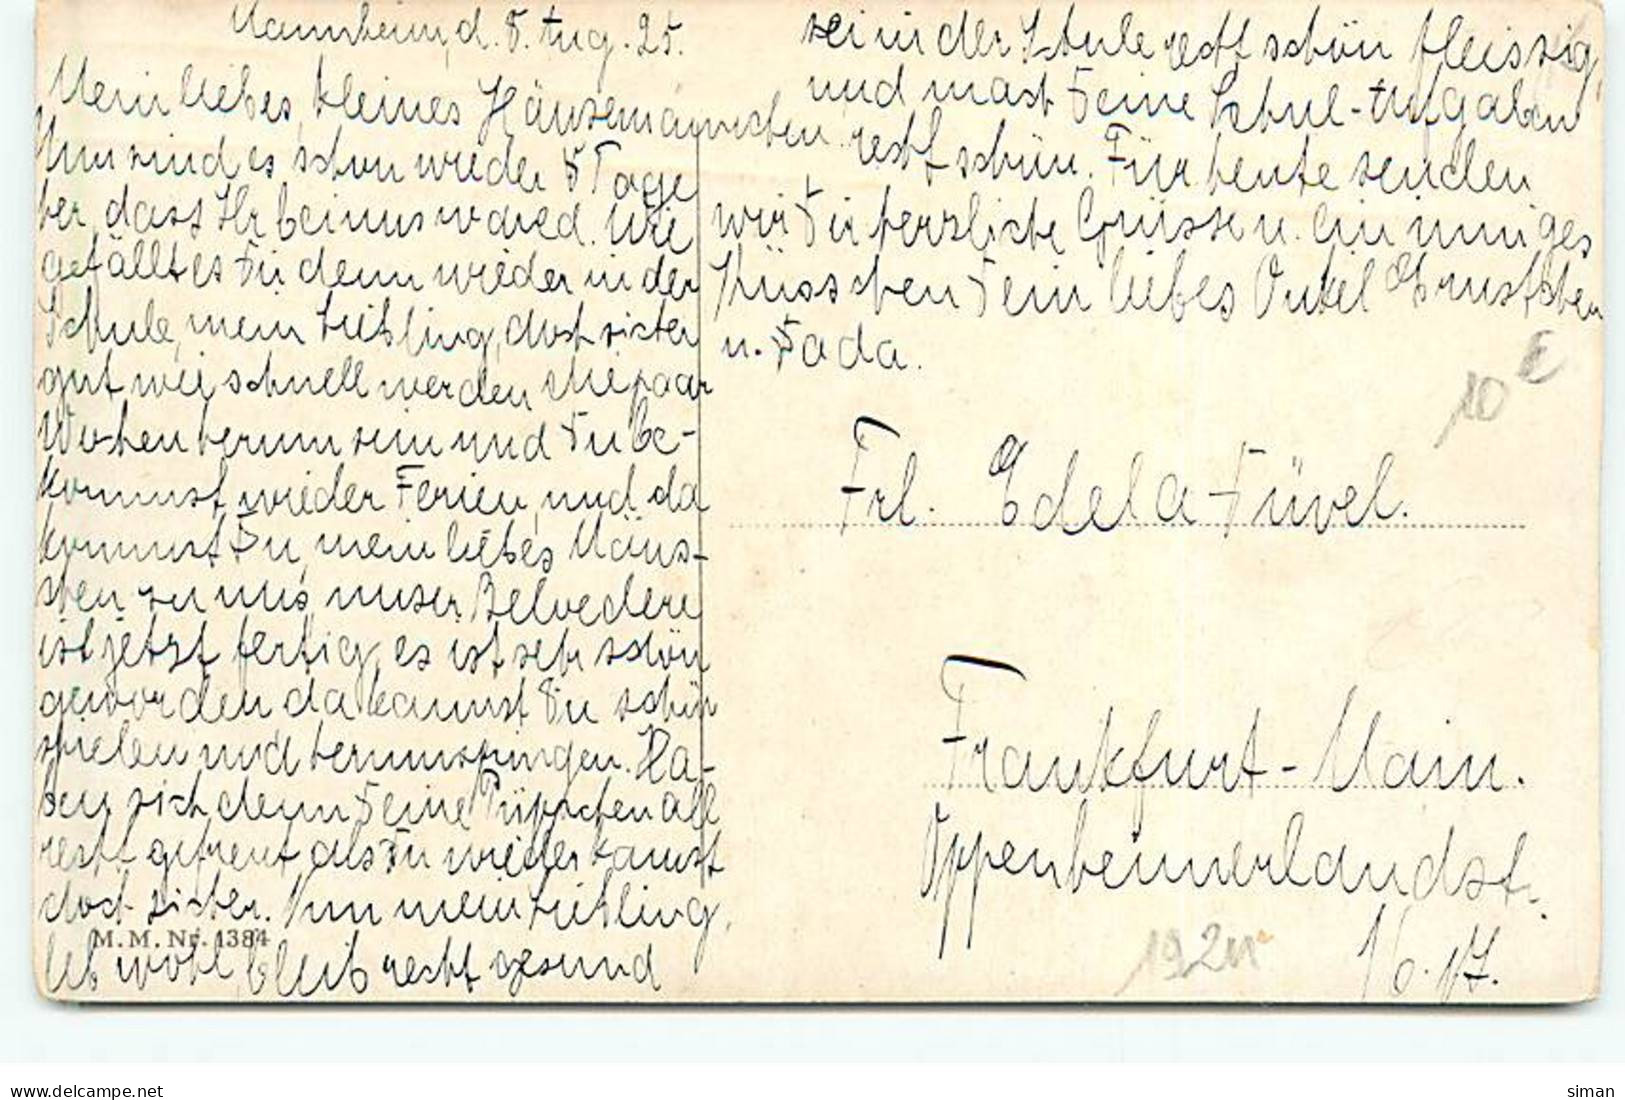 Mannheim, d. 8. Aug. 25.
Mein liebes, kleines Hänsemännchen
Nun sind es schon wieder 8 Tage
her, dass Ihr bei uns wared. Wie
gefällt es Dir denn wieder in der
Schule, mein Liebling, doch sicher
gut wie schnell werden die paar
Wochen herum sein und Du be-
kommst wieder Ferien, und da
kommst Du, mein liebes Mäus-
chen zu uns, unser Belvedere
ist jetzt fertig, es ist sehr schön
geworden da kannst Du schön
spielen und herumspringen. Ha-
ben sich denn Deine Püppchen all
recht gefreut als Du wieder kamst
doch sicher. Nun mein Liebling,
leb wohl, bleib recht gesund
sei in der Schule recht schön fleissig,
und mach Deine Schul-Aufgaben
recht schön. Für heute senden
wir Dir herzliche Grüsse u. ein inniges
Küsschen Dein liebes Onkel Ernstchen
u. Dada.
10 €
Frl. Edela Düvel.
Frankfurt-Main.
Oppenheimerlandstr.
M. M. Nr. 1384
siman
www.delcampe.net